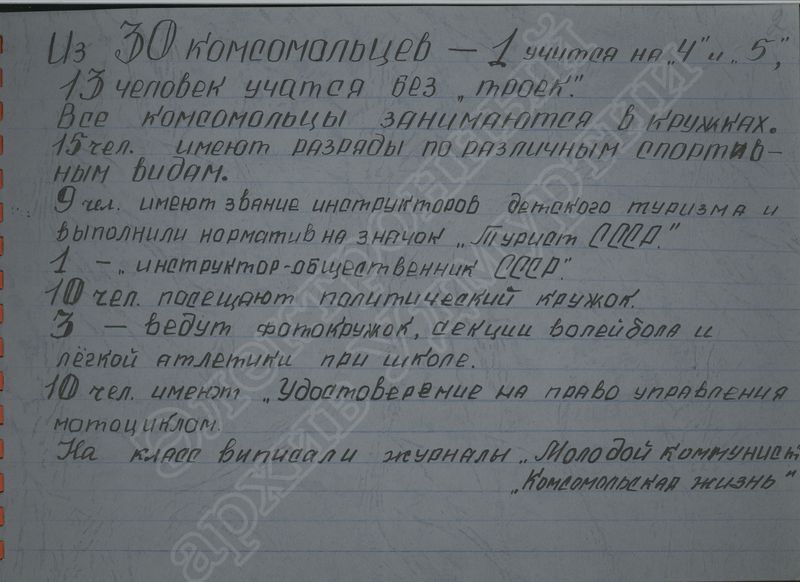 2
Из 30 комсомольцев – 1 учится на „4" и „5",
13 человек учатся без „троек".
Все комсомольцы занимаются в кружках.
15 чел. имеют разряды по различным спортив–
ным видам.
9 чел. имеют звание инструкторов детского туризма и
выполнили норматив на значок „Турист СССР."
1 – „инструктор-общественник СССР".
10 чел. посещают политический кружок.
3 – ведут фотокружок, секции волейбола и
лёгкой атлетики при школе.
10 чел. имеют „Удостоверение на право управления
мотоциклом.
На класс виписали журналы „Молодой коммунист
„Комсомольская жизнь"
Электронный
архив Удмуртии